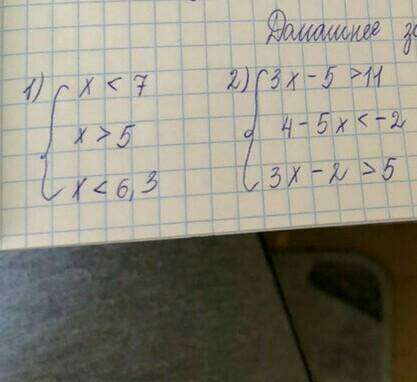 Домашнее
1) { x < 7
x > 5
x < 6,3
2) { 3x - 5 > 11
4 - 5x < -2
3x - 2 > 5